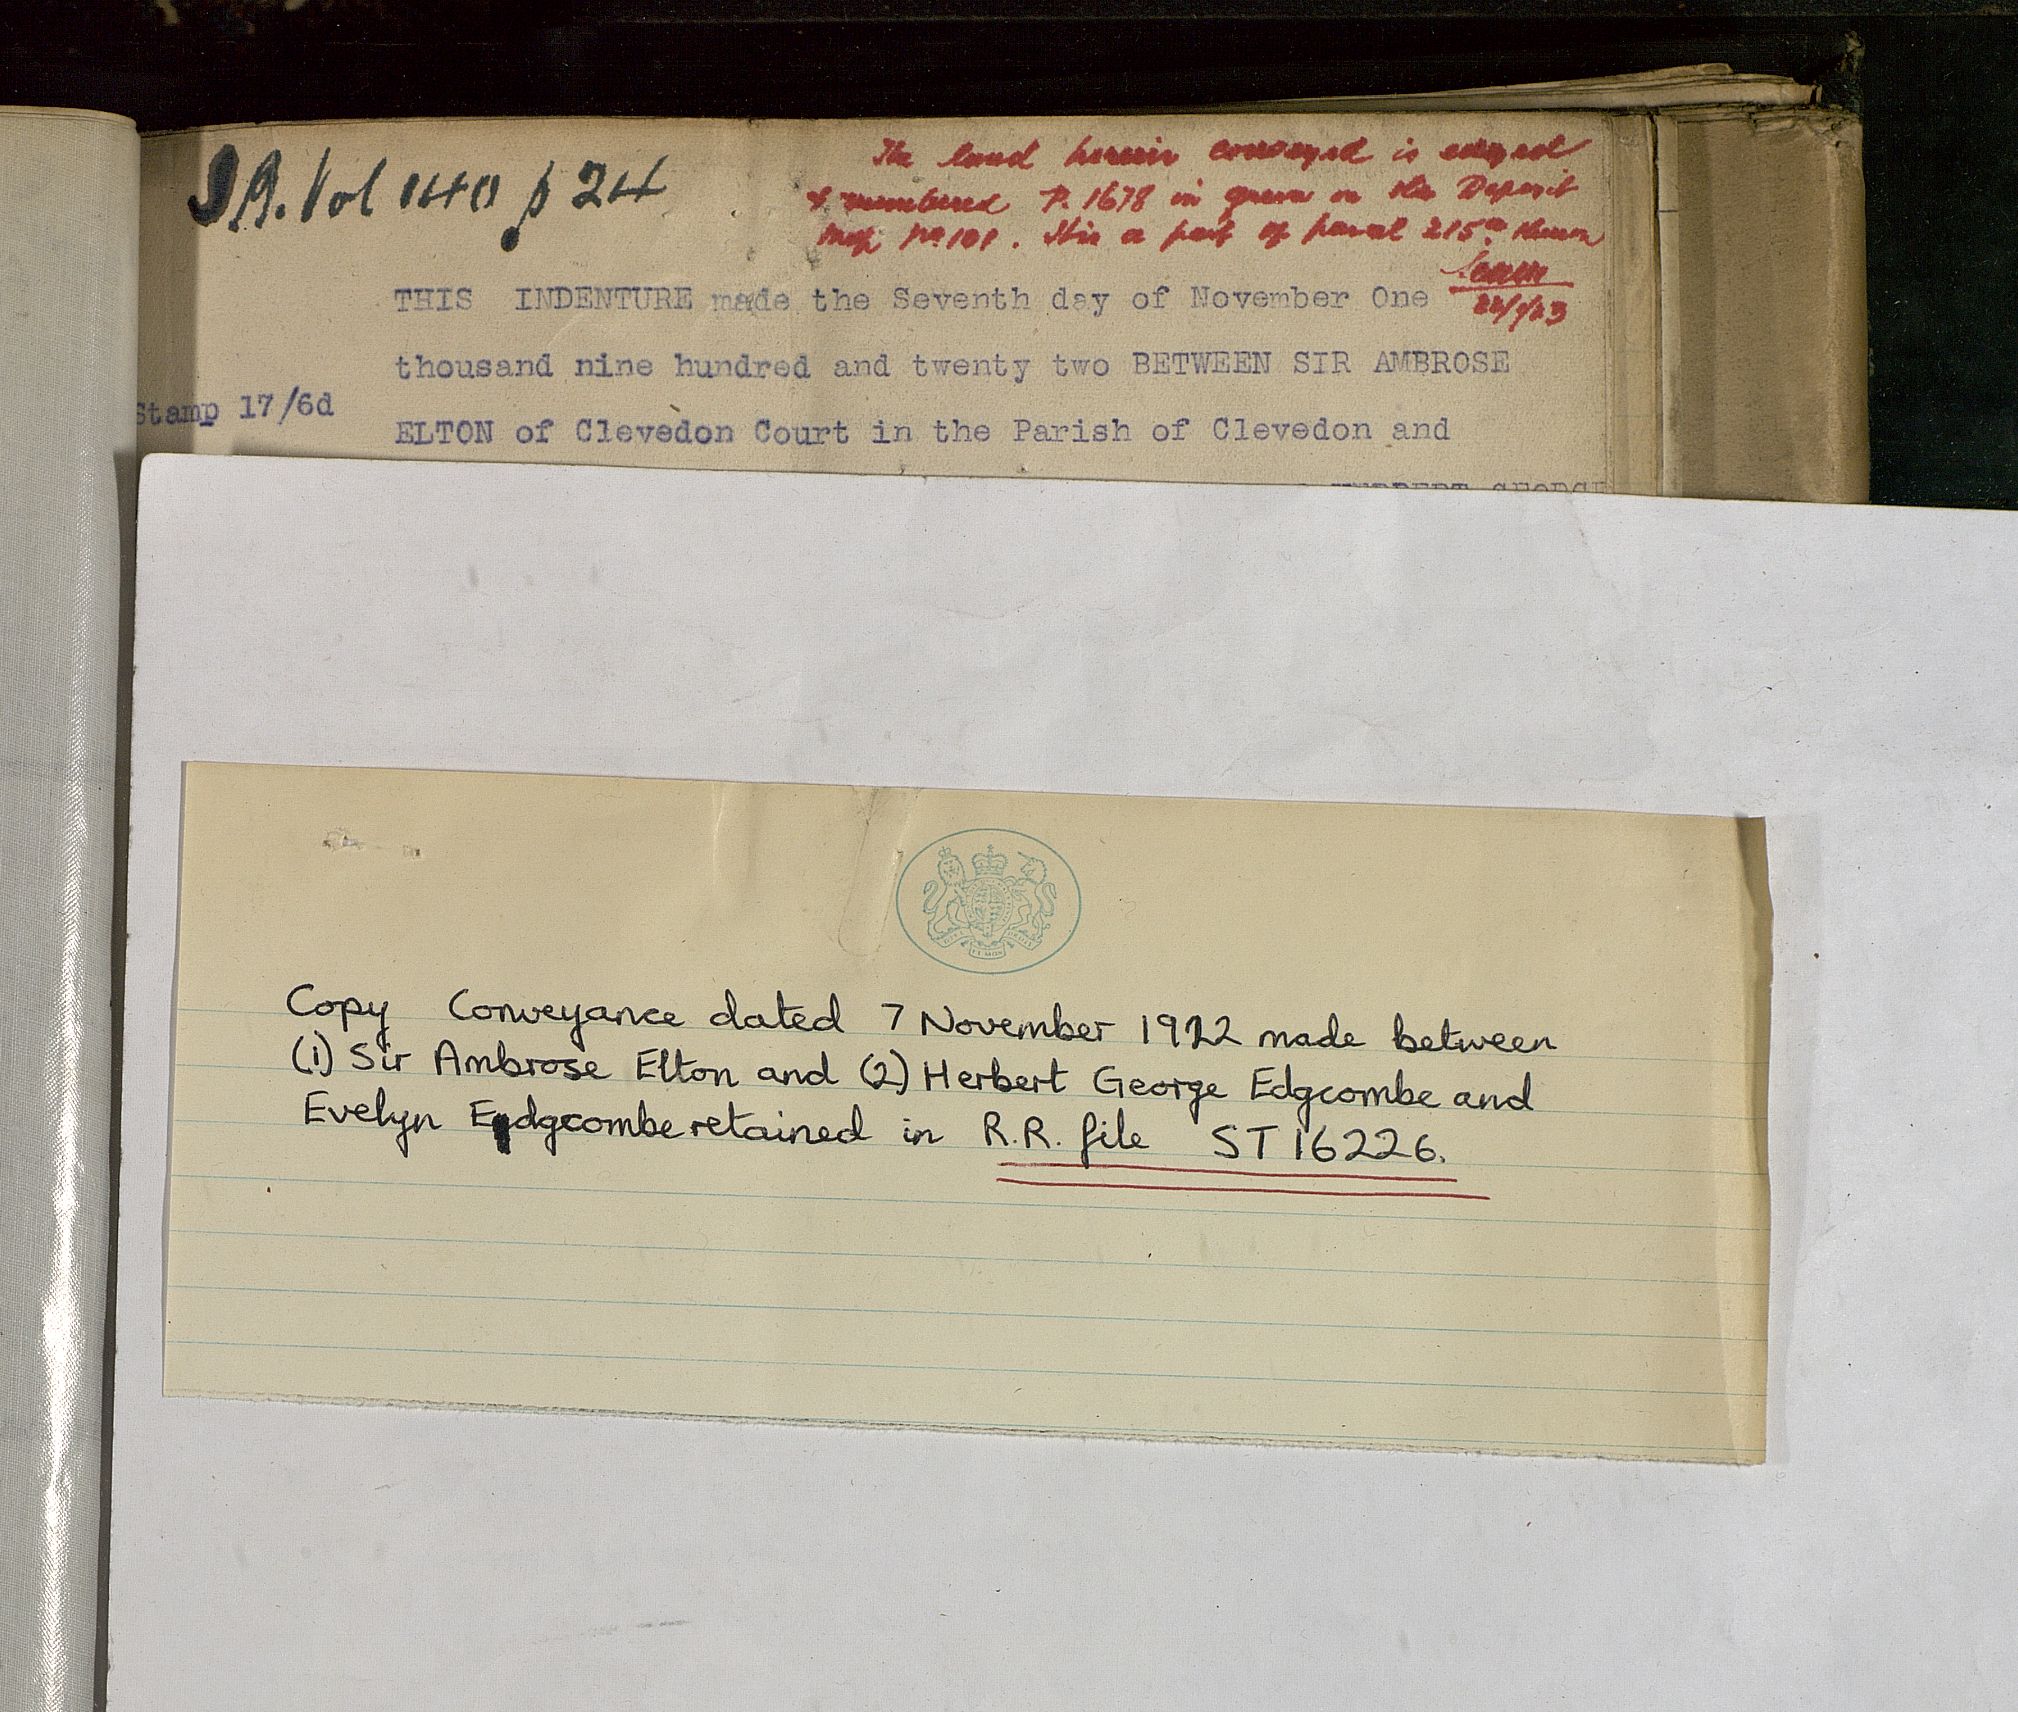 D.R. Vol 1440 p 24
The land herein conveyed is edged
& numbered P. 1678 in green on the Deposit
Map No 101. It is a part of parcel 215a thereon
THIS INDENTURE made the Seventh day of November One
thousand nine hundred and twenty two BETWEEN SIR AMBROSE
Stamp 17/6d
ELTON of Clevedon Court in the Parish of Clevedon and
HERBERT GEORGE
Copy Conveyance dated 7 November 1922 made between
(1) Sir Ambrose Elton and (2) Herbert George Edgcombe and
Evelyn Edgcombe retained in R.R. file ST 16226.